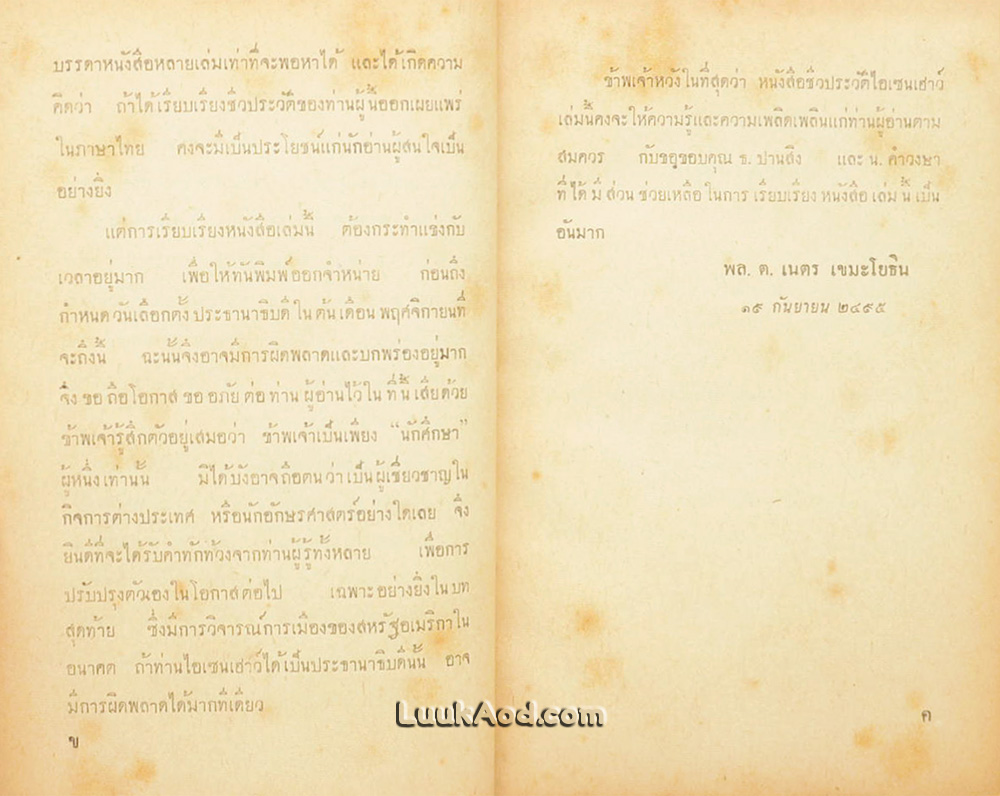 บรรดาหนังสือหลายเล่มเท่าที่จะพอหาได้ และได้เกิดความ
คิดว่า ถ้าได้เรียบเรียงชีวประวัติของท่านผู้นี้ออกเผยแพร่
ในภาษาไทย คงจะมีเป็นประโยชน์แก่นักอ่านผู้สนใจเป็น
อย่างยิ่ง
แต่การเรียบเรียงหนังสือเล่มนี้ ต้องกระทำแข่งกับ
เวลาอยู่มาก เพื่อให้ทันพิมพ์ออกจำหน่าย ก่อนถึง
กำหนดวันเลือกตั้งประธานาธิบดีในต้นเดือนพฤศจิกายนที่
จะถึงนี้ ฉะนั้นจึงอาจมีการผิดพลาดและบกพร่องอยู่มาก
จึงขอถือโอกาสขออภัยต่อท่านผู้อ่านไว้ในที่นี้เสียด้วย
ข้าพเจ้ารู้สึกตัวอยู่เสมอว่า ข้าพเจ้าเป็นเพียง “นักศึกษา”
ผู้หนึ่งเท่านั้น มิได้บังอาจถือตนว่าเป็นผู้เชี่ยวชาญใน
กิจการต่างประเทศ หรือนักอักษรศาสตร์อย่างใดเลย จึง
ยินดีที่จะได้รับคำทักท้วงจากท่านผู้รู้ทั้งหลาย เพื่อการ
ปรับปรุงตัวเองในโอกาสต่อไป เฉพาะอย่างยิ่งในบท
สุดท้าย ซึ่งมีการวิจารณ์การเมืองของสหรัฐอเมริกาใน
อนาคต ถ้าท่านไอเซนเฮาว์ได้เป็นประธานาธิบดีนั้น อาจ
มีการผิดพลาดได้มากทีเดียว
ข
ข้าพเจ้าหวังในที่สุดว่า หนังสือชีวประวัติไอเซนเฮาว์
เล่มนี้คงจะให้ความรู้และความเพลิดเพลินแก่ท่านผู้อ่านตาม
สมควร กับขอขอบคุณ ธ. ปานสิง และ น. คำวงษา
ที่ได้มีส่วนช่วยเหลือในการเรียบเรียงหนังสือเล่มนี้เป็น
อันมาก
พล. ต. เนตร เขมะโยธิน
๑๕ กันยายน ๒๔๙๕
ค
LuukAod.com